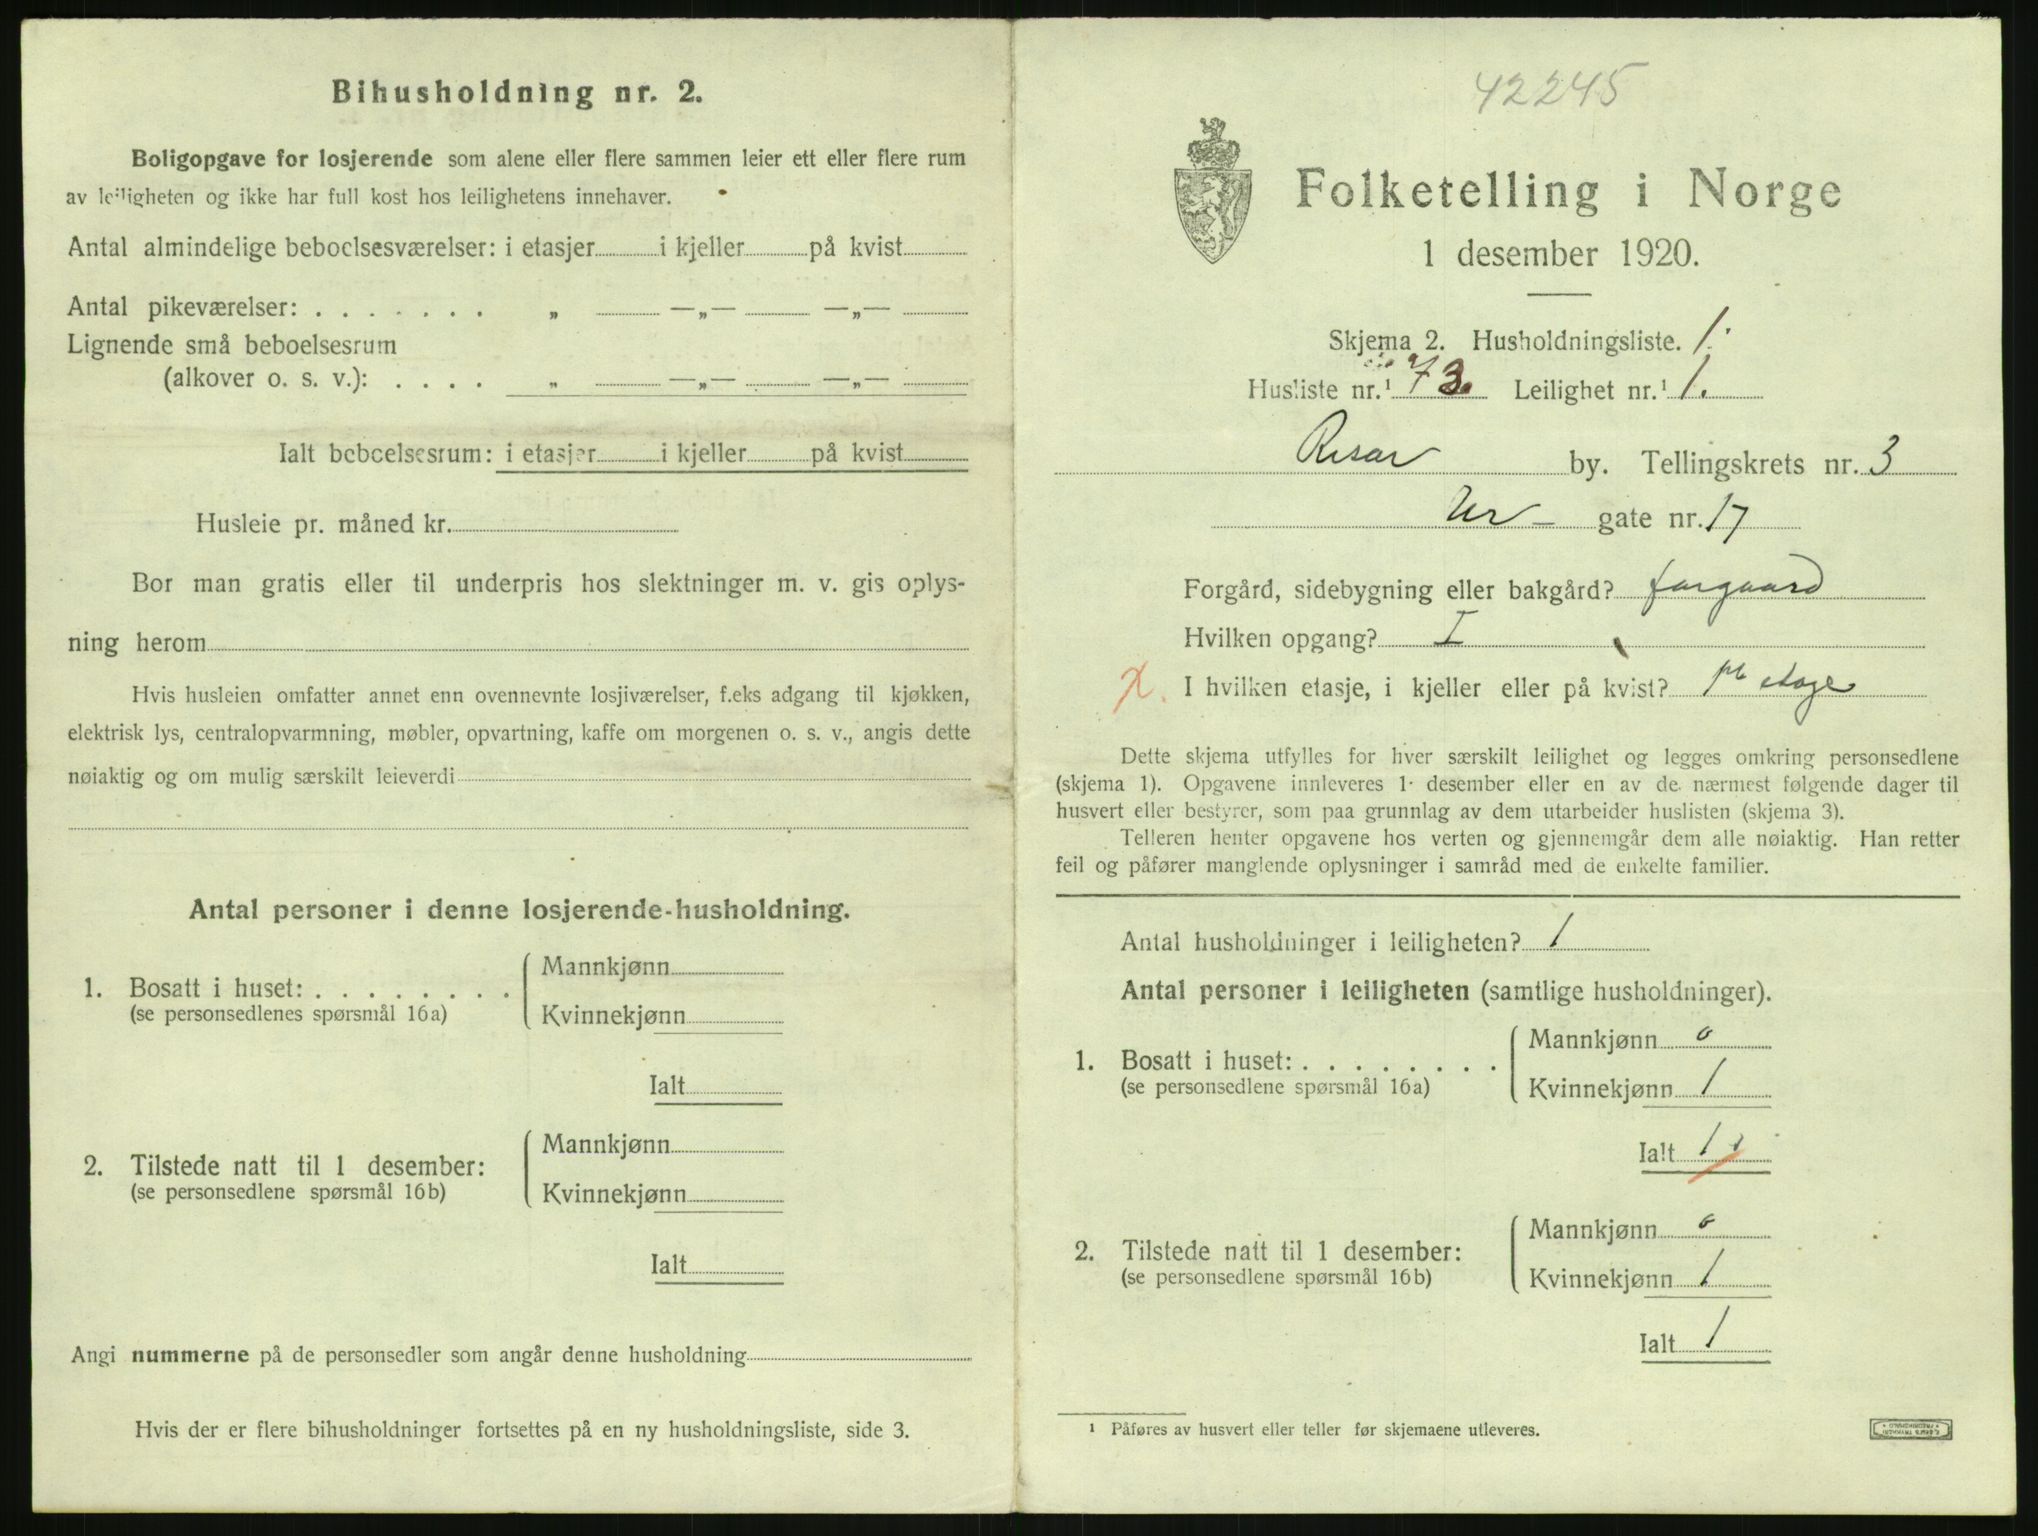 Bihusholdning nr. 2.
Boligopgave for losjerende som alene eller flere sammen leier ett eller flere rum
av leiligheten og ikke har full kost hos leilighetens innehaver.
Antal almindelige beboelsesværelser: i etasjer i kjeller på kvist
Antal pikeværelser: . . . . . . . „ —„— —„—
Lignende små beboelsesrum
(alkover o. s. v.): . . . . „ —„— —„—
Ialt beboelsesrum: i etasjer i kjeller på kvist
Husleie pr. måned kr.
Bor man gratis eller til underpris hos slektninger m. v. gis oplys-
ning herom
Hvis husleien omfatter annet enn ovennevnte losjiværelser, f.eks adgang til kjøkken,
elektrisk lys, centralopvarmning, møbler, opvartning, kaffe om morgenen o. s. v., angis dette
nøiaktig og om mulig særskilt leieverdi
Antal personer i denne losjerende-husholdning.
1. Bosatt i huset: . . . . . . . . Mannkjønn
(se personsedlenes spørsmål 16a) Kvinnekjønn
Ialt
2. Tilstede natt til 1 desember: Mannkjønn
(se personsedlene spørsmål 16b) Kvinnekjønn
Ialt
Angi nummerne på de personsedler som angår denne husholdning
Hvis der er flere bihusholdninger fortsettes på en ny husholdningsliste, side 3.
42245
Folketelling i Norge
1 desember 1920.
Skjema 2. Husholdningsliste. 1.
Husliste nr.¹ 73. Leilighet nr.¹ 1.
Risør by. Tellingskrets nr. 3
Ur- gate nr. 17
Forgård, sidebygning eller bakgård? forgaard
Hvilken opgang? I
X. I hvilken etasje, i kjeller eller på kvist? 1ste etage
Dette skjema utfylles for hver særskilt leilighet og legges omkring personsedlene
(skjema 1). Opgavene innleveres 1· desember eller en av de nærmest følgende dager til
husvert eller bestyrer, som paa grunnlag av dem utarbeider huslisten (skjema 3).
Telleren henter opgavene hos verten og gjennemgår dem alle nøiaktig. Han retter
feil og påfører manglende oplysninger i samråd med de enkelte familier.
Antal husholdninger i leiligheten? 1
Antal personer i leiligheten (samtlige husholdninger).
1. Bosatt i huset: . . . . . . . . Mannkjønn 0
(se personsedlene spørsmål 16a) Kvinnekjønn 1
Ialt 1 1
2. Tilstede natt til 1 desember: Mannkjønn 0
(se personsedlene spørsmål 16b) Kvinnekjønn 1
Ialt 1
¹ Påføres av husvert eller teller før skjemaene utleveres.